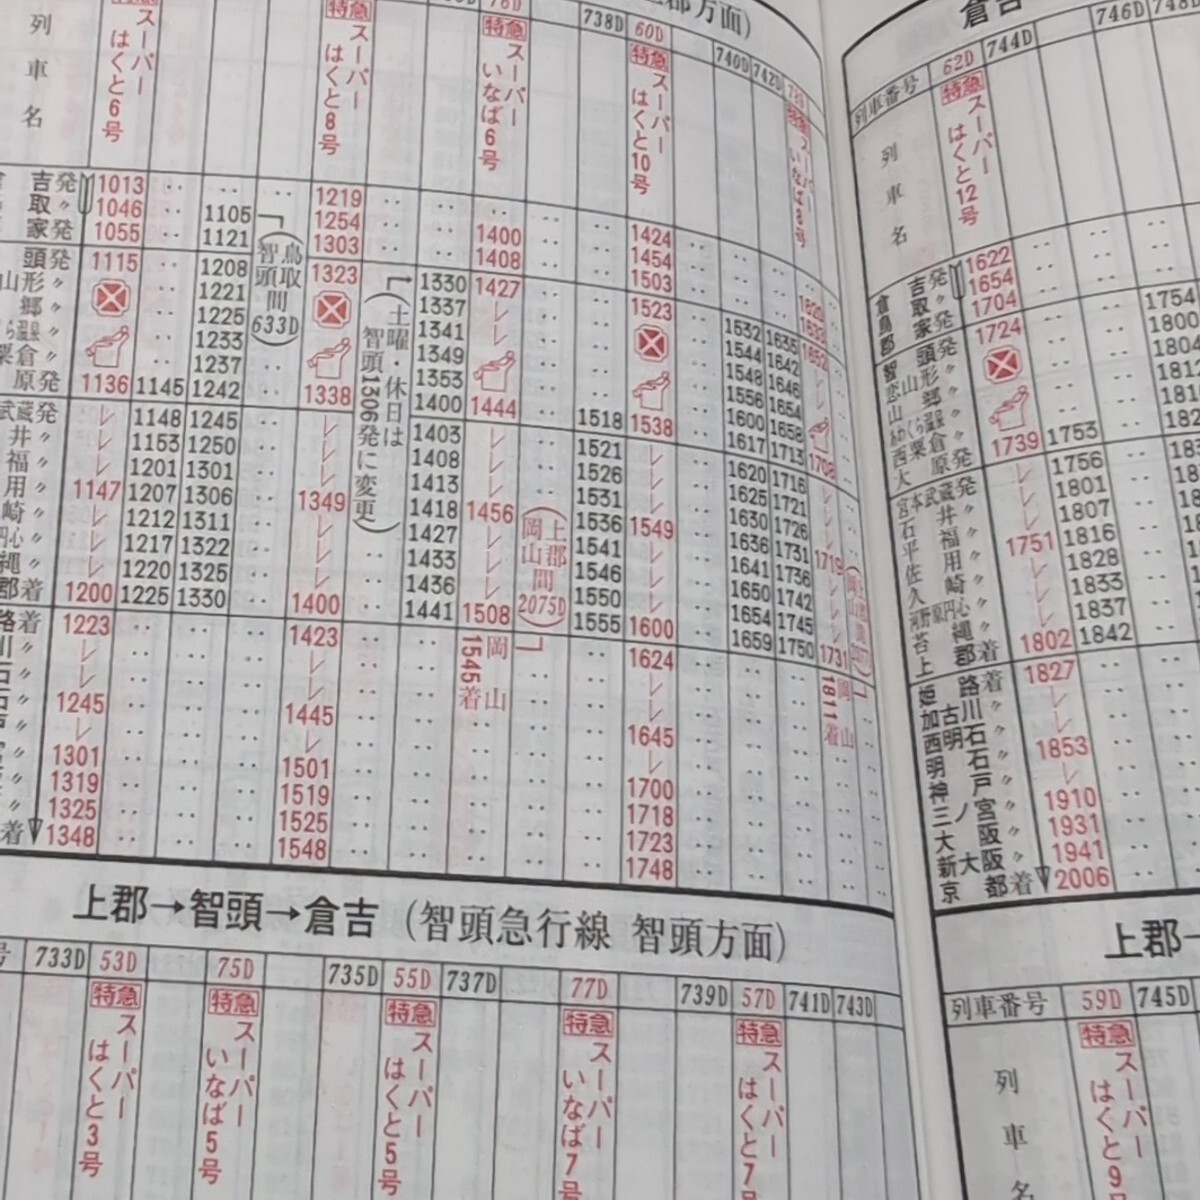 郡方面)
76D
738D
60D
740D
742D
列車名
特急
スーパー
はくと6号
特急
スーパー
はくと8号
特急
スーパー
いなば6号
特急
スーパー
はくと10号
特急
スーパー
いなば8号
吉発 1013 1219 1424
取〃 1046 1105 1254 1400 1454
家発 1055 1121 1303 1408 1503
頭発 1115 1208 1323 1330 1427 1523 1532 1635 1652
山形〃 1221 1337 1544 1642
郷〃 1225 1341 1548 1646
1233 1349 1556 1654
倉〃 1237 1353 1600 1658
原発 1136 1145 1242 1338 1400 1444 1518 1538 1617 1713 1708
武蔵発 1148 1245 1403 1521 1620 1716
井〃 1153 1250 1408 1526 1625 1721
福〃 1201 1301 1413 1531 1630 1726
用〃 1147 1207 1306 1349 1418 1456 1536 1549 1636 1731 1719
崎〃 1212 1311 1427 1541 1641 1736
円心〃 1217 1322 1433 1546 1650 1742
縄〃 1220 1325 1436 1550 1654 1745
郡着 1200 1225 1330 1400 1441 1508 1555 1600 1659 1750 1731
路着 1223 1423 1624
川〃
石〃 1245 1445 1645
戸〃
宮〃 1301 1501 1700
1319 1519 1718
〃 1325 1525 1723
着 1348 1548 1748
(鳥取智頭間633D)
(土曜・休日は智頭1306発に変更)
(上郡岡山間2075D)
岡山1545着
岡山1811着
上郡→智頭→倉吉(智頭急行線 智頭方面)
号 733D 53D 75D 735D 55D 737D 77D 739D 57D 741D 743D
特急
スーパー
はくと3号
特急
スーパー
いなば5号
特急
スーパー
はくと5号
特急
スーパー
いなば7号
特急
スーパー
はくと7号
倉吉
列車番号 62D 744D 746D 748D
列車名
特急
スーパー
はくと12号
倉吉発 1622
鳥取〃 1654
郡家発 1704
智頭発 1724 1754
恋山形〃 1800
山郷〃 1804
あわくら温泉〃 1812
西粟倉〃
大原発 1739 1753
宮本武蔵発 1756
石井〃 1801
平福〃 1807
佐用〃 1751 1816
久崎〃 1828
河野原円心〃 1833
苔縄〃 1837
上郡着 1802 1842
姫路着 1827
加古川〃
西明石〃 1853
明石〃
神戸〃
三ノ宮〃 1910
大阪〃 1931
新大阪〃 1941
京都着 2006
上郡→
列車番号 59D 745D
列車名
特急
スーパー
はくと9